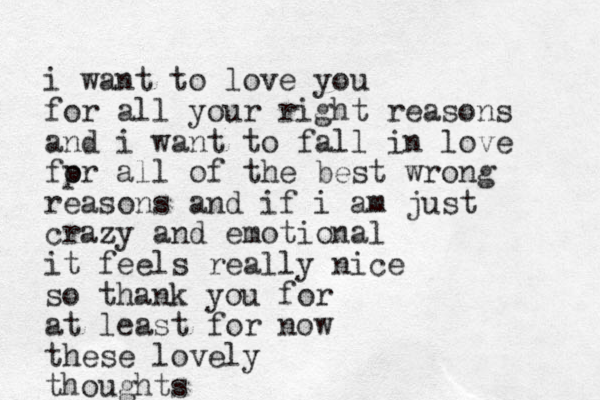 i want to love you
for all your right reasons
and i want to fall in love
for all of the best wrong
reasons and if i am just
crazy and emotional
it feels really nice
so thank you for
at least for now
these lovely
thoughts